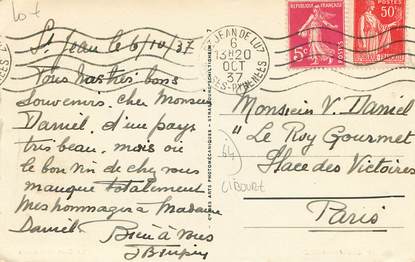 lot
St Jean le 6/10/37
Tous nos très bons
souvenirs, cher Monsieur
Daniel, d'un pays
très beau, mais où
le bon vin de chez vous
manque totalement
Mes hommages à Madame
Daniel Bien à vous
ST JEAN DE LUZ
6
13H20
OCT
37
SES-PYRENEES
5c
POSTES
50c
POSTES
Monsieur V. Daniel
"Le Roy Gourmet
Place des Victoires
Paris
64
CIBOURE